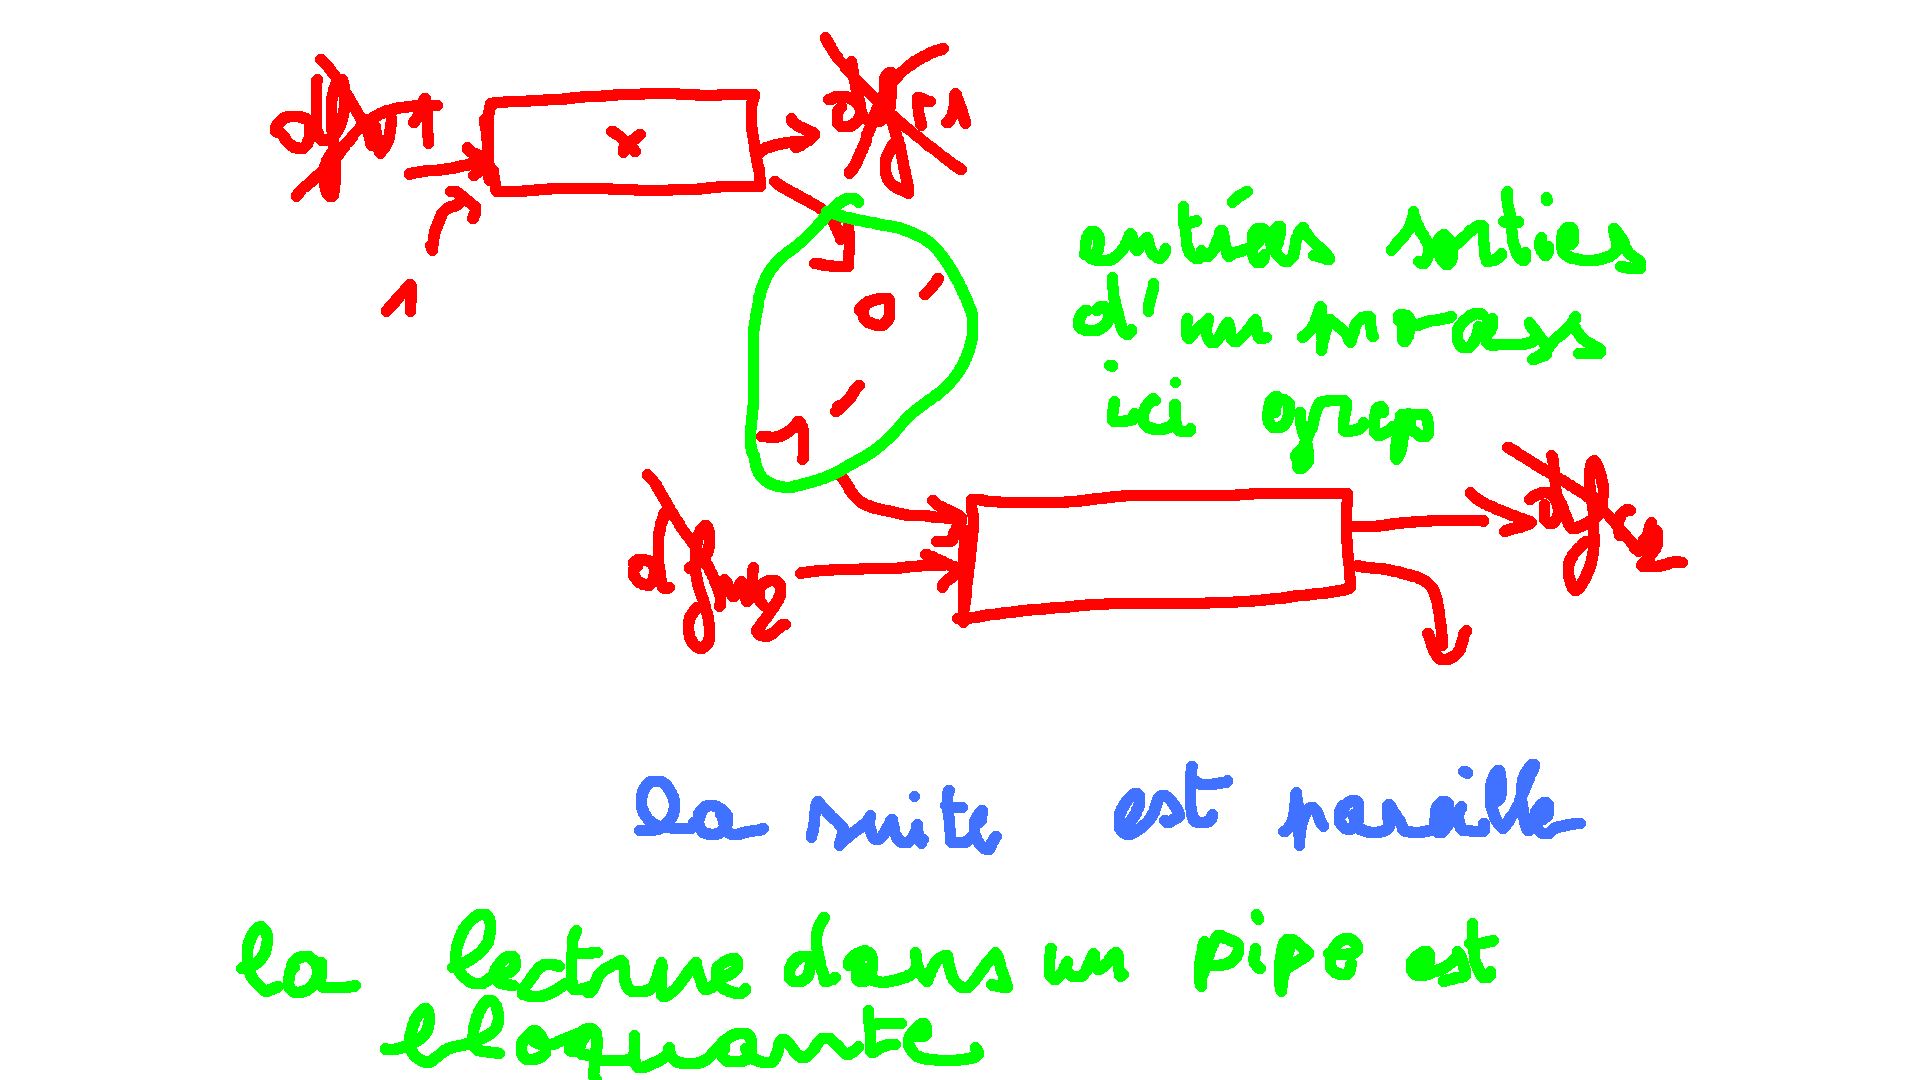 dfw1
x
dfr1
1
0
1
entrées sorties
d'un process
ici egrep
dfw2
dfr2
la suite est pareille
la lecture dans un pipe est
bloquante